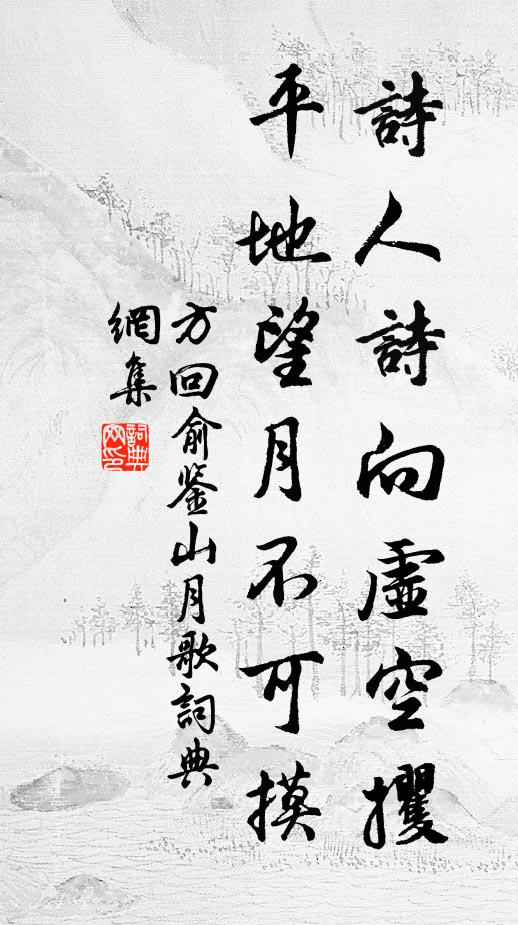 詩人詩向虛空攫
平地望月不可摸
方回俞鉴山月歌詞典
網集
詞典網印